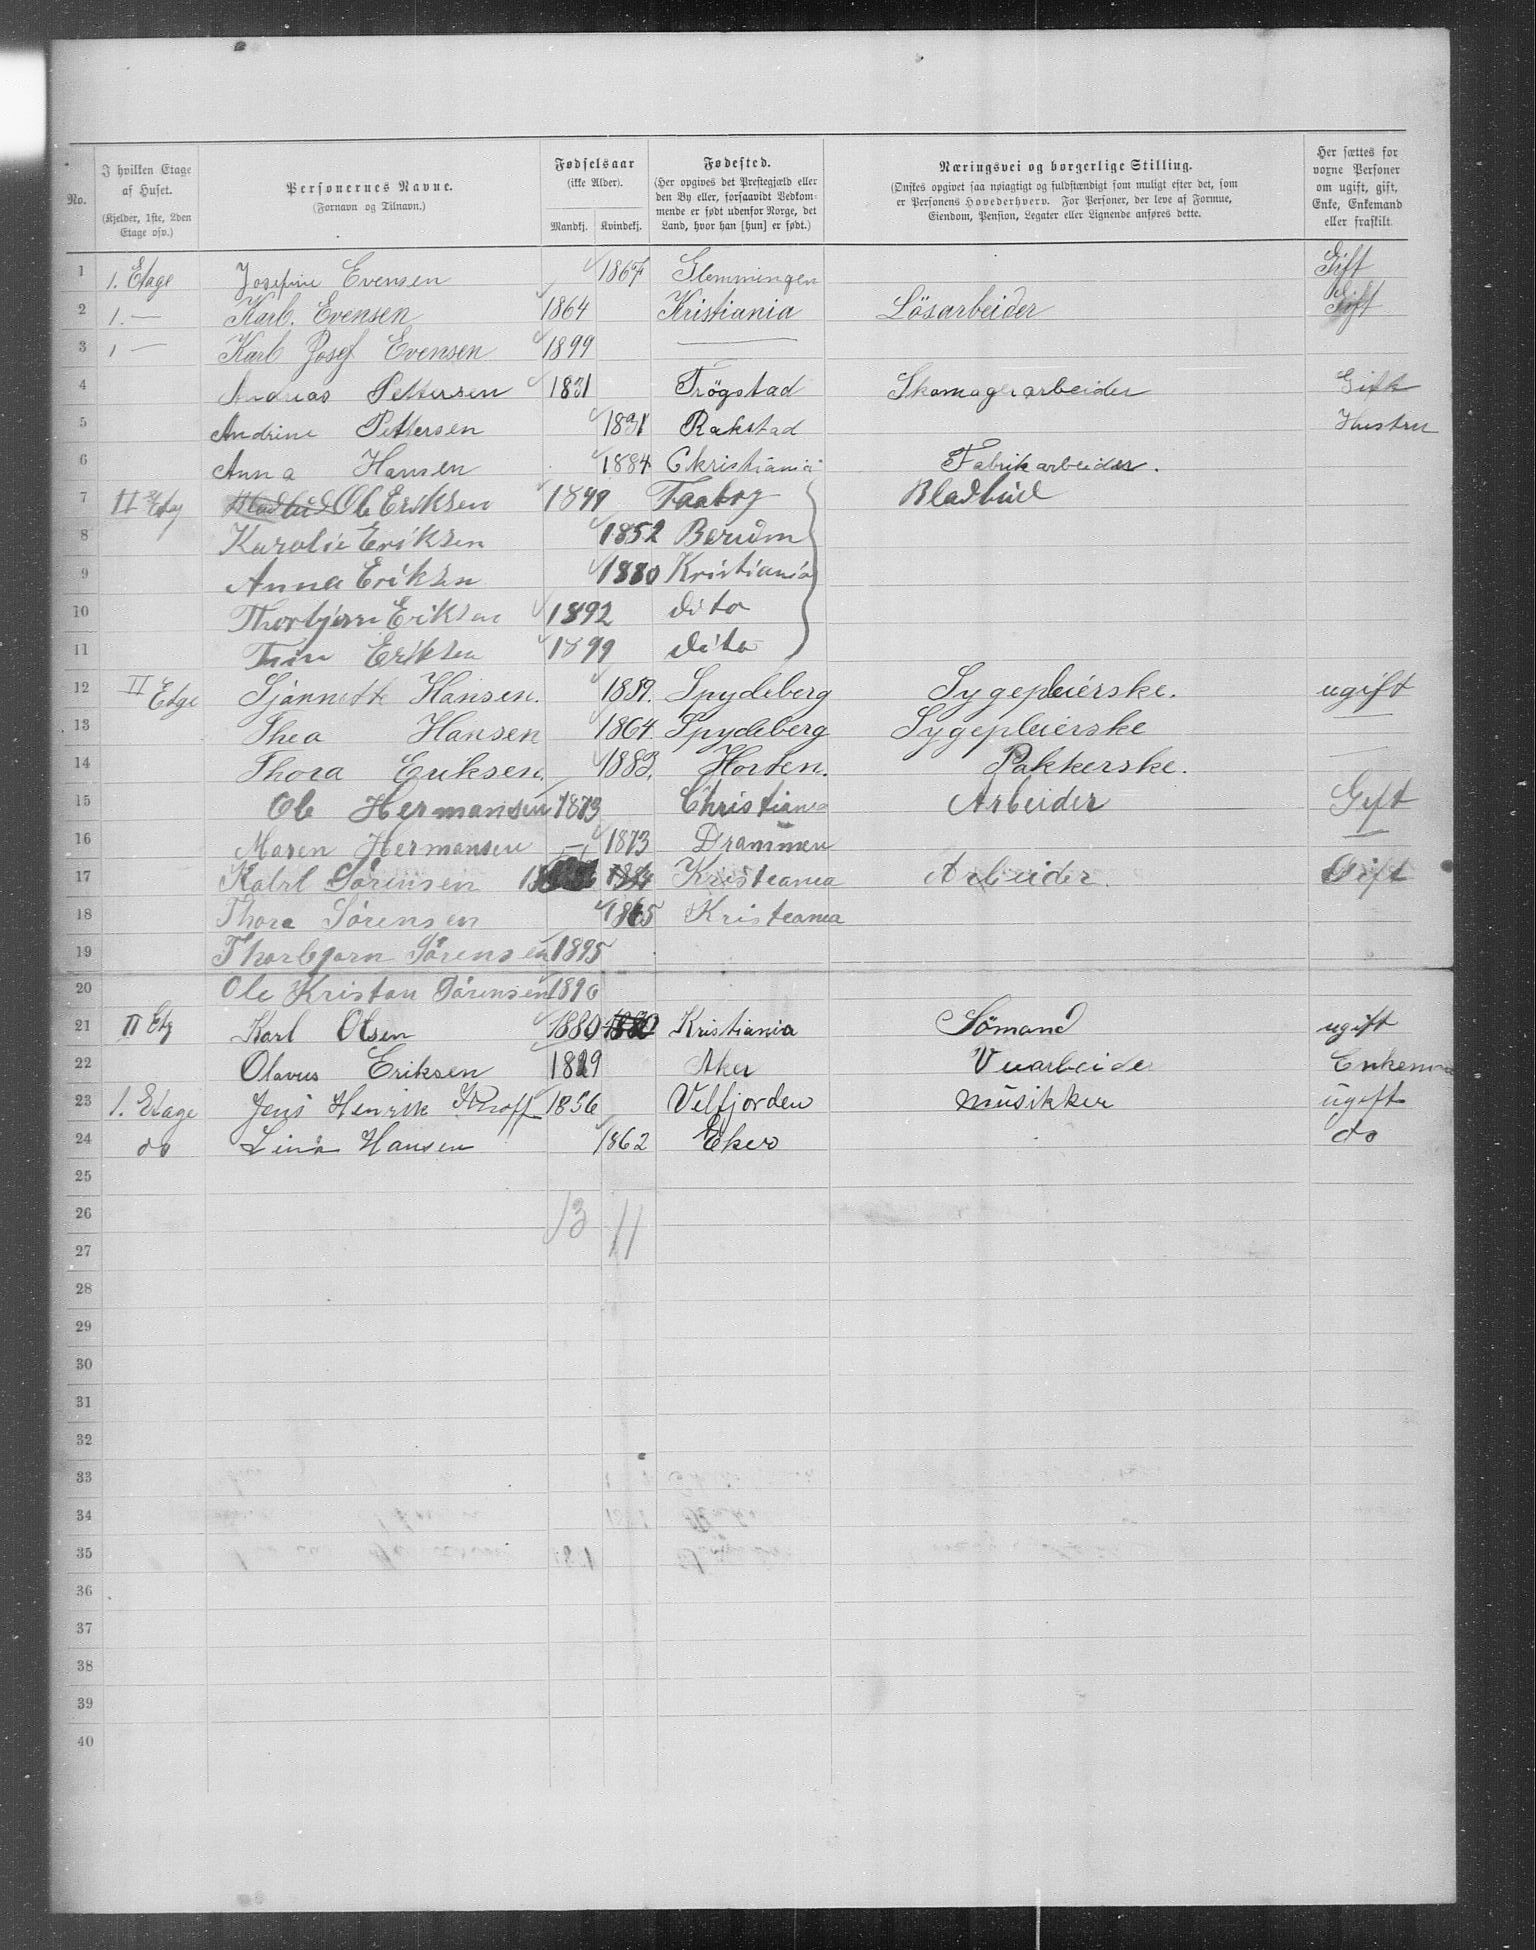 No. | I hvilken Etage af Huset. (Kjelder, 1ste, 2den Etage osv.) | Personernes Navne. (Fornavn og Tilnavn.) | Fødselsaar (ikke Alder). Mandkj. | Kvindekj. | Fødested. (Her opgives det Prestegjæld eller den By eller, forsaavidt Vedkommende er født udenfor Norge, det Land, hvor han [hun] er født.) | Næringsvei og borgerlige Stilling. (Ønskes opgivet saa nøiagtigt og fuldstændigt som muligt efter det, som er Personens Hovederhverv. For Personer, der leve af Formue, Eiendom, Pension, Legater eller Lignende anføres dette. | Her sættes for voxne Personer om ugift, gift, Enke, Enkemand eller fraskilt.
1 1. Etage Josefine Evensen 1867 Glemmingen Gift
2 1. — Karl. Evensen 1864 Kristiania Lösarbeider Gift
3 1 — Karl Josef Evensen 1899 —
4 Andreas Pettersen 1831 Trögstad Skomagerarbeider Gift
5 Andrine Pettersen 1831 Rakstad Hustru
6 Anna Hansen 1884 Christiania Fabrikarbeider.
7 II Etg Ole Eriksen 1849 Faaborg Bladbud
8 Karolie Eriksen 1852 Berum
9 Anna Eriksen 1880 Kristiania
10 Thorbjørn Eriksen 1892 dito
11 Eriksen 1899 dito
12 II Etge Sjannette Hansen. 1859. Spydeberg Sygepleierske. ugift
13 Thea Hansen 1864. Spydeberg Sygepleierske —
14 Thora Eriksen. 1883. Horten. Pakkerske. —
15 Ole Hermansen 1873 Christiania Arbeider Gift
16 Maren Hermansen — 1873 Drammen —
17 Kalrl Sörensen 1884 Kristeania Arbeider. Gift
18 Thora Sörensen 1865 Kristeania
19 Thorbjorn Sörensen 1895
20 Ole Kristan Sörensen 1890
21 II Etg Karl Olsen 1880 1880 Kristiania Sömand ugift
22 Olavus Eriksen 1829 Aker Veiarbeide Enkem
23 1. Etage Jens Henrik Knoff 1856 Velfjorden musikker ugift
24 do Lina Hansen 1862 Eker do
25
26 13 11
27
28
29
30
31
32
33
34
35
36
37
38
39
40